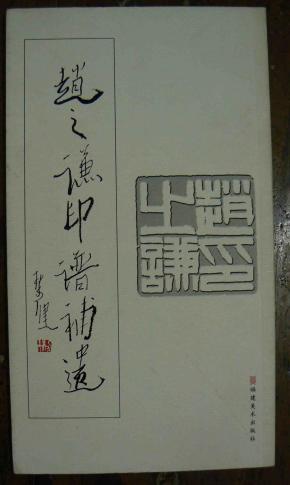 趙之謙印譜補遺
趙印
之謙
福建美术出版社